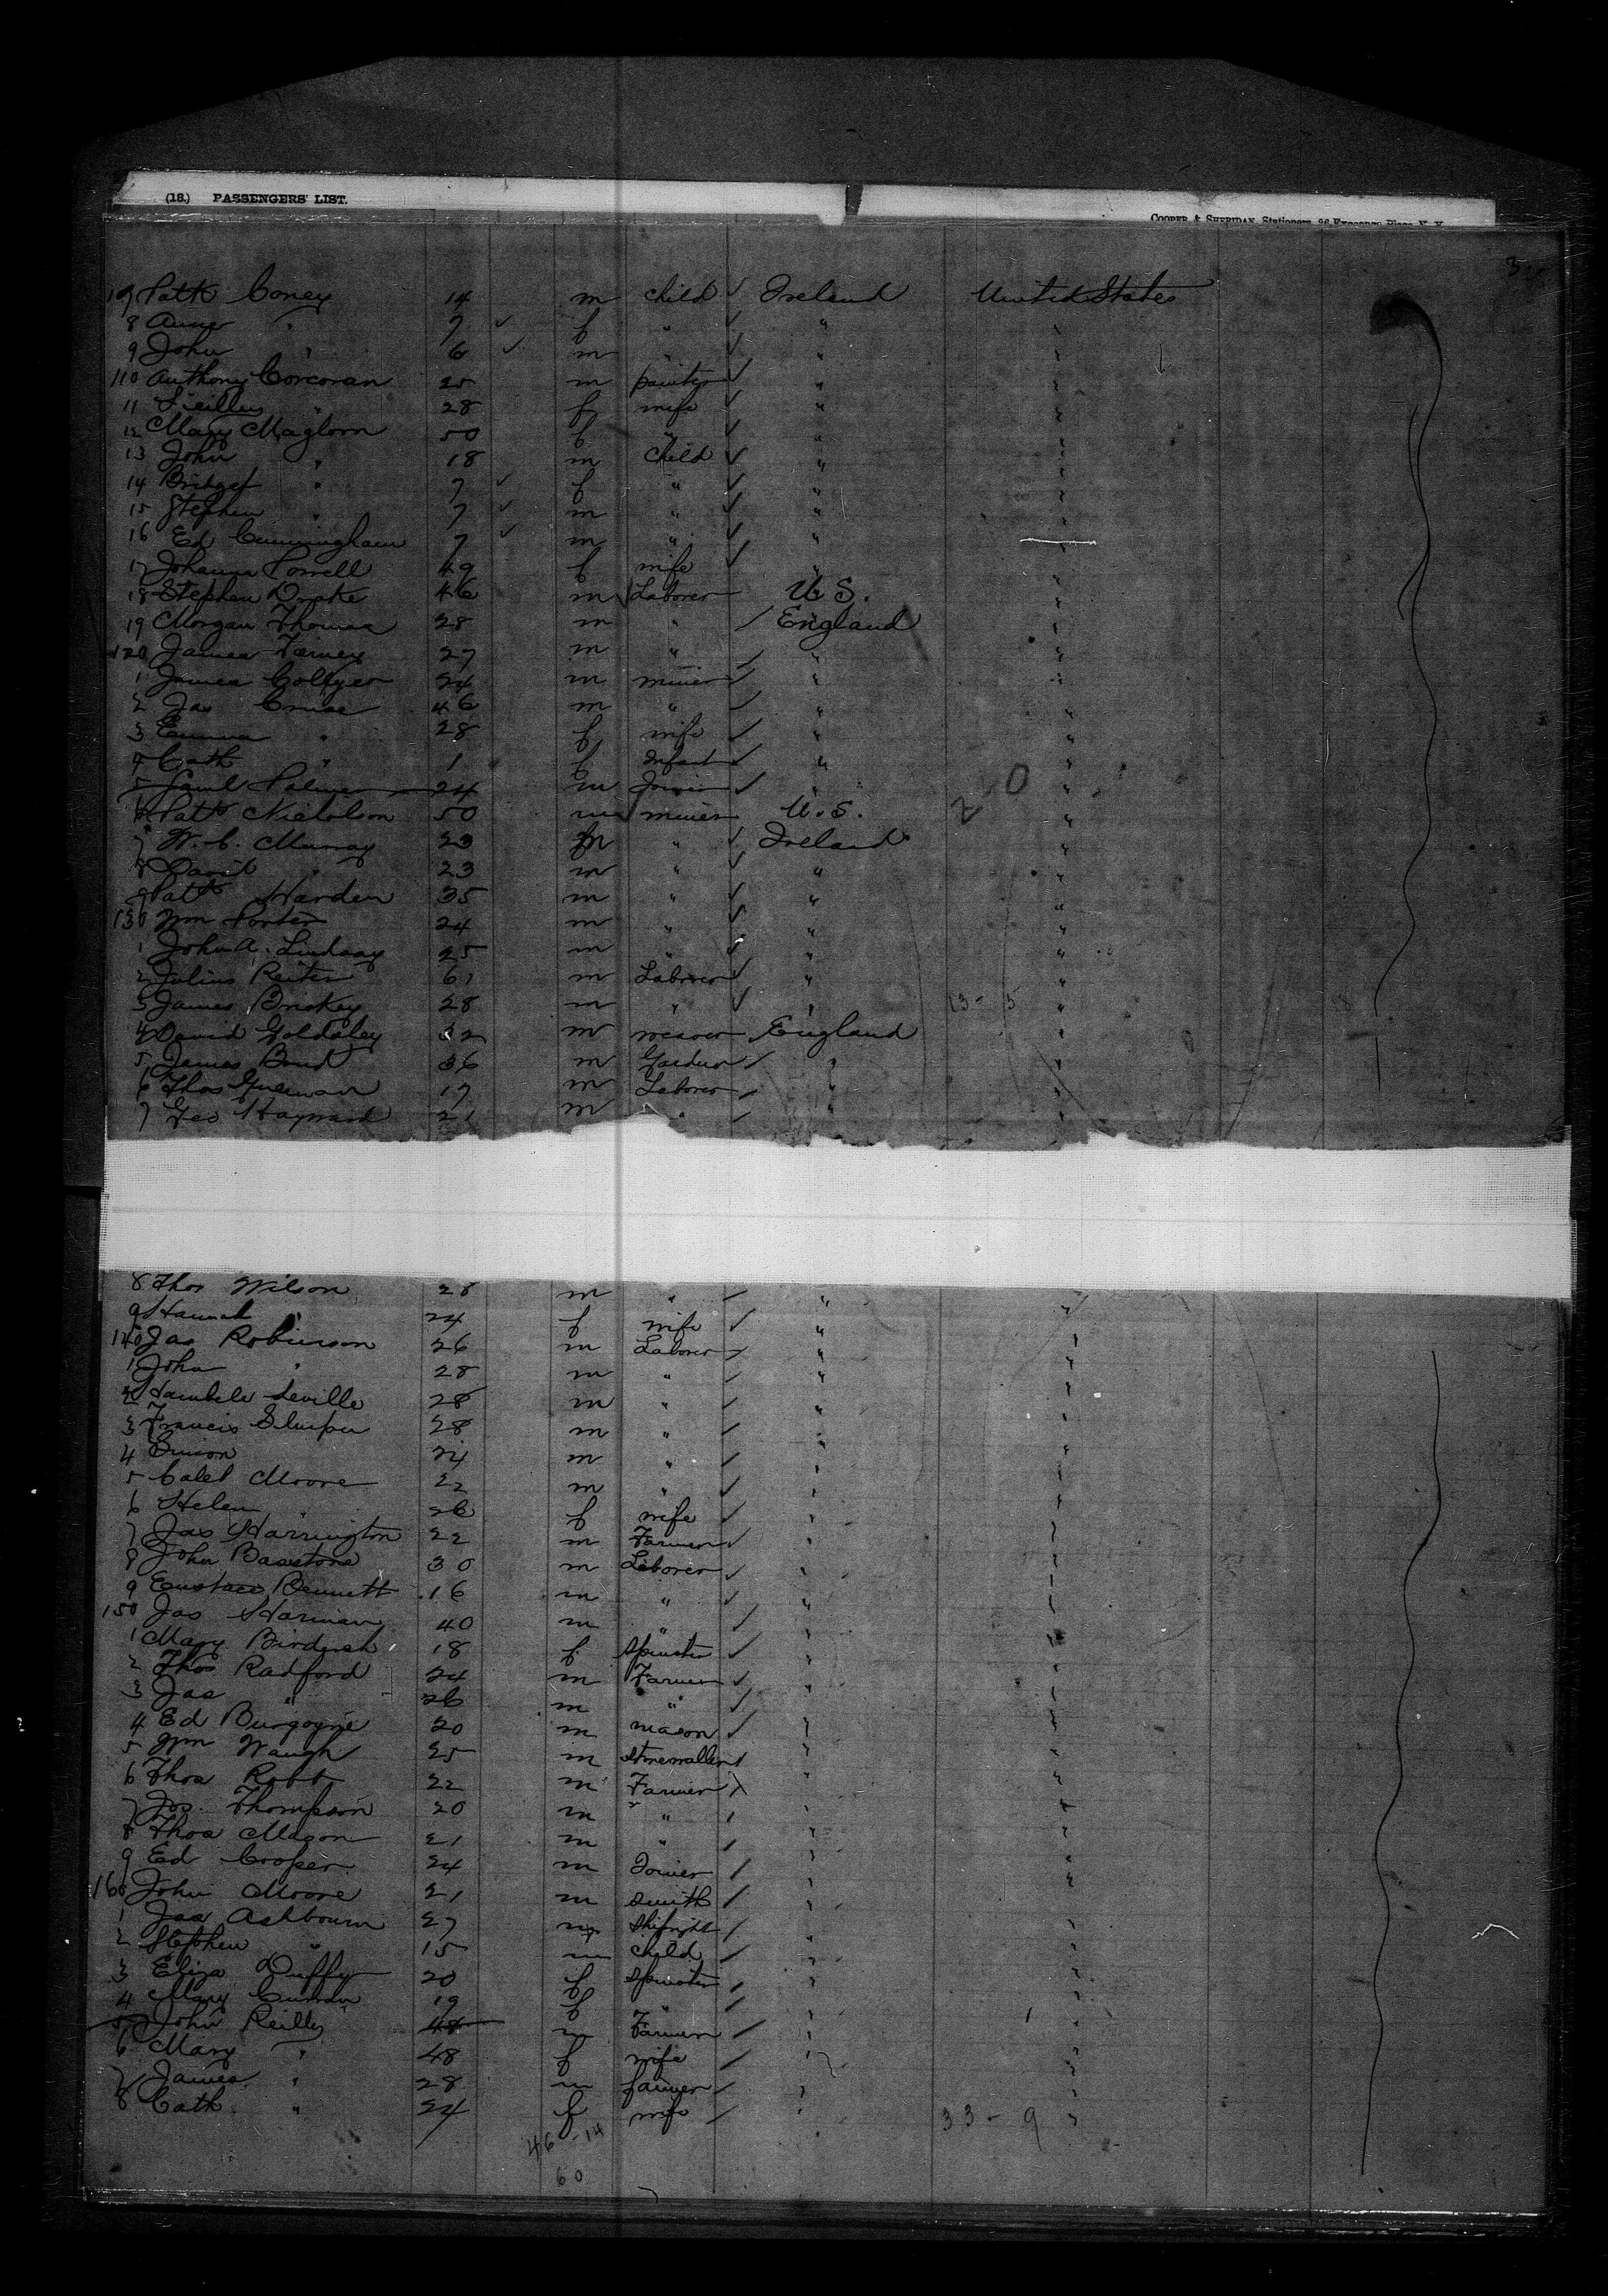 (18.) PASSENGERS' LIST.
COOPER & SHERIDAN, Stationers, 26 Exchange Place, N. Y.
3
107 Patk Coney 14 m child ✓ Ireland United States
8 Anne " 7 ✓ f " ✓ " "
9 John " 6 ✓ m " ✓ " "
110 Anthony Corcoran 25 m painter ✓ " "
11 " 28 f wife ✓ " "
12 Mary 50 f " ✓ " "
13 John " 18 m child ✓ " "
14 Bridget " 7 ✓ f " ✓ " "
15 Stephen " 7 ✓ m " ✓ " "
16 Ed Cunningham 7 ✓ m " ✓ " "
17 Johanna Powell 49 f wife ✓ " "
18 Stephen Drake 46 m Laborer U S. "
19 Morgan Thomas 28 m " / England "
120 James 27 m " ✓ " "
1 James Collyer 24 m miner ✓ " "
2 Jas Cruise 46 m " ✓ " "
3 Emma " 28 f wife ✓ " "
4 Cath " 1 f Infant ✓ " "
5 Saml Palmer 24 m Joiner ✓ " "
6 Patk Nicholson 50 m miner U.S. "
7 W. C. Murray 23 m " ✓ Ireland "
8 David " 23 m " ✓ " "
9 Patk Harden 35 m " ✓ " "
130 Wm Porter 24 m " ✓ " "
1 John A. Lindsay 25 m " ✓ " "
2 Julius Reiter 61 m Laborer ✓ " "
3 James Briskey 28 m " ✓ " 13 - 5 "
4 David Goldsley 32 m weaver England "
5 James Bond 36 m / " "
6 Thos 17 m Laborer / " "
7 Geo Hayward 21 m " / " "
8 Thos Wilson 28 m " / " "
9 Hannah " 24 f wife ✓ " "
140 Jas Robinson 26 m Laborer ✓ " "
1 John " 28 m " / " "
2 Seville 28 m " / " "
3 Francis 28 m " / " "
4 24 m " / " "
5 Caleb Moore 22 m " / " "
6 Helen " 26 f wife / " "
7 Jas Harrington 22 m Farmer ✓ " "
8 John 30 m Laborer ✓ " "
9 Eustace Bennett 16 m " ✓ " "
150 Jas Harman 40 m " / " "
1 Mary 18 f Spinster ✓ " "
2 Thos Radford 24 m Farmer ✓ " "
3 Jas " 26 m " ✓ " "
4 Ed Burgoyne 20 m mason ✓ " "
5 Wm Waugh 25 m Stonewaller " "
6 Thos Robb 22 m Farmer " "
7 Jos. Thompson 20 m " / " "
8 Thos Mason 21 m " / " "
9 Ed Cooper 24 m Joiner / " "
160 John Moore 21 m Smith / " "
1 Jas Ashbourn 27 m / " "
2 Stephen " 15 m child / " "
3 Eliza Duffy 20 f Spinster / " "
4 Mary Curran 19 f " / " "
5 John Reilly 48 m Farmer / " "
6 Mary " 48 f wife / " "
7 James " 28 m farmer / " "
8 Cath " 24 f wife / " 33 - 9 "
46 - 14
60